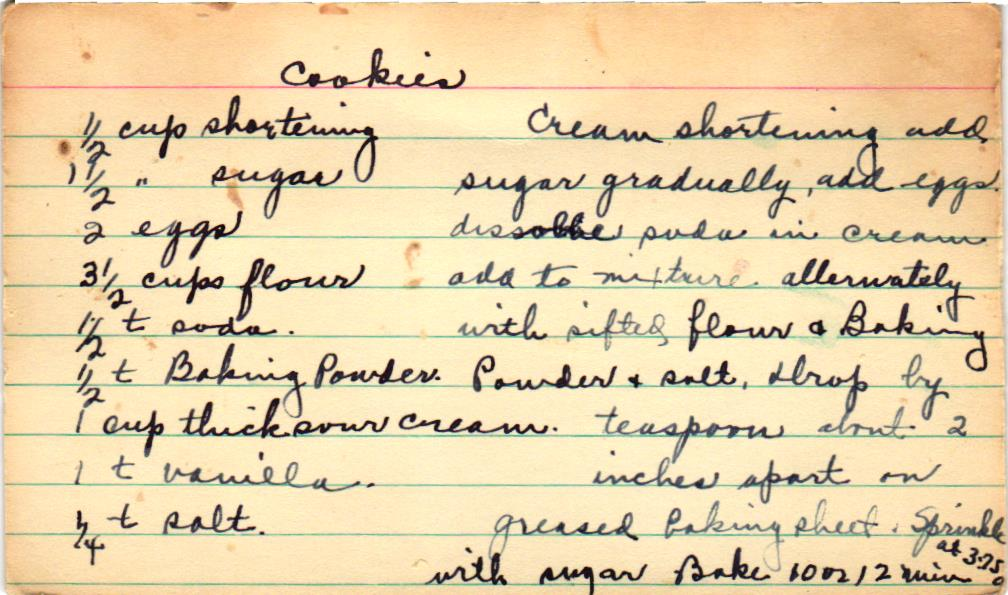 Cookies
1/2 cup shortening
1 1/2 " sugar
2 eggs
3 1/2 cups flour
1/2 t soda.
1/2 t Baking Powder.
1 cup thick sour cream.
1 t vanilla.
1/4 t salt.
Cream shortening add
sugar gradually, add eggs.
dissolve soda in cream
add to mixture allernately
with sifted flour & Baking
Powder & salt, drop by
teaspoon about 2
inches apart on
greased baking sheet. Sprinkle
with sugar Bake 10 or 12 min at 375°